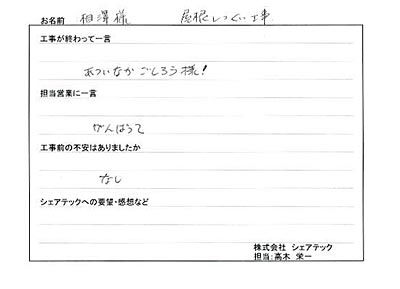 お名前 相澤様 屋根しっくい工事
工事が終わって一言
あついなかごくろう様!
担当営業に一言
がんばって
工事前の不安はありましたか
なし
シェアテックへの要望・感想など
株式会社 シェアテック
担当:高木 栄一